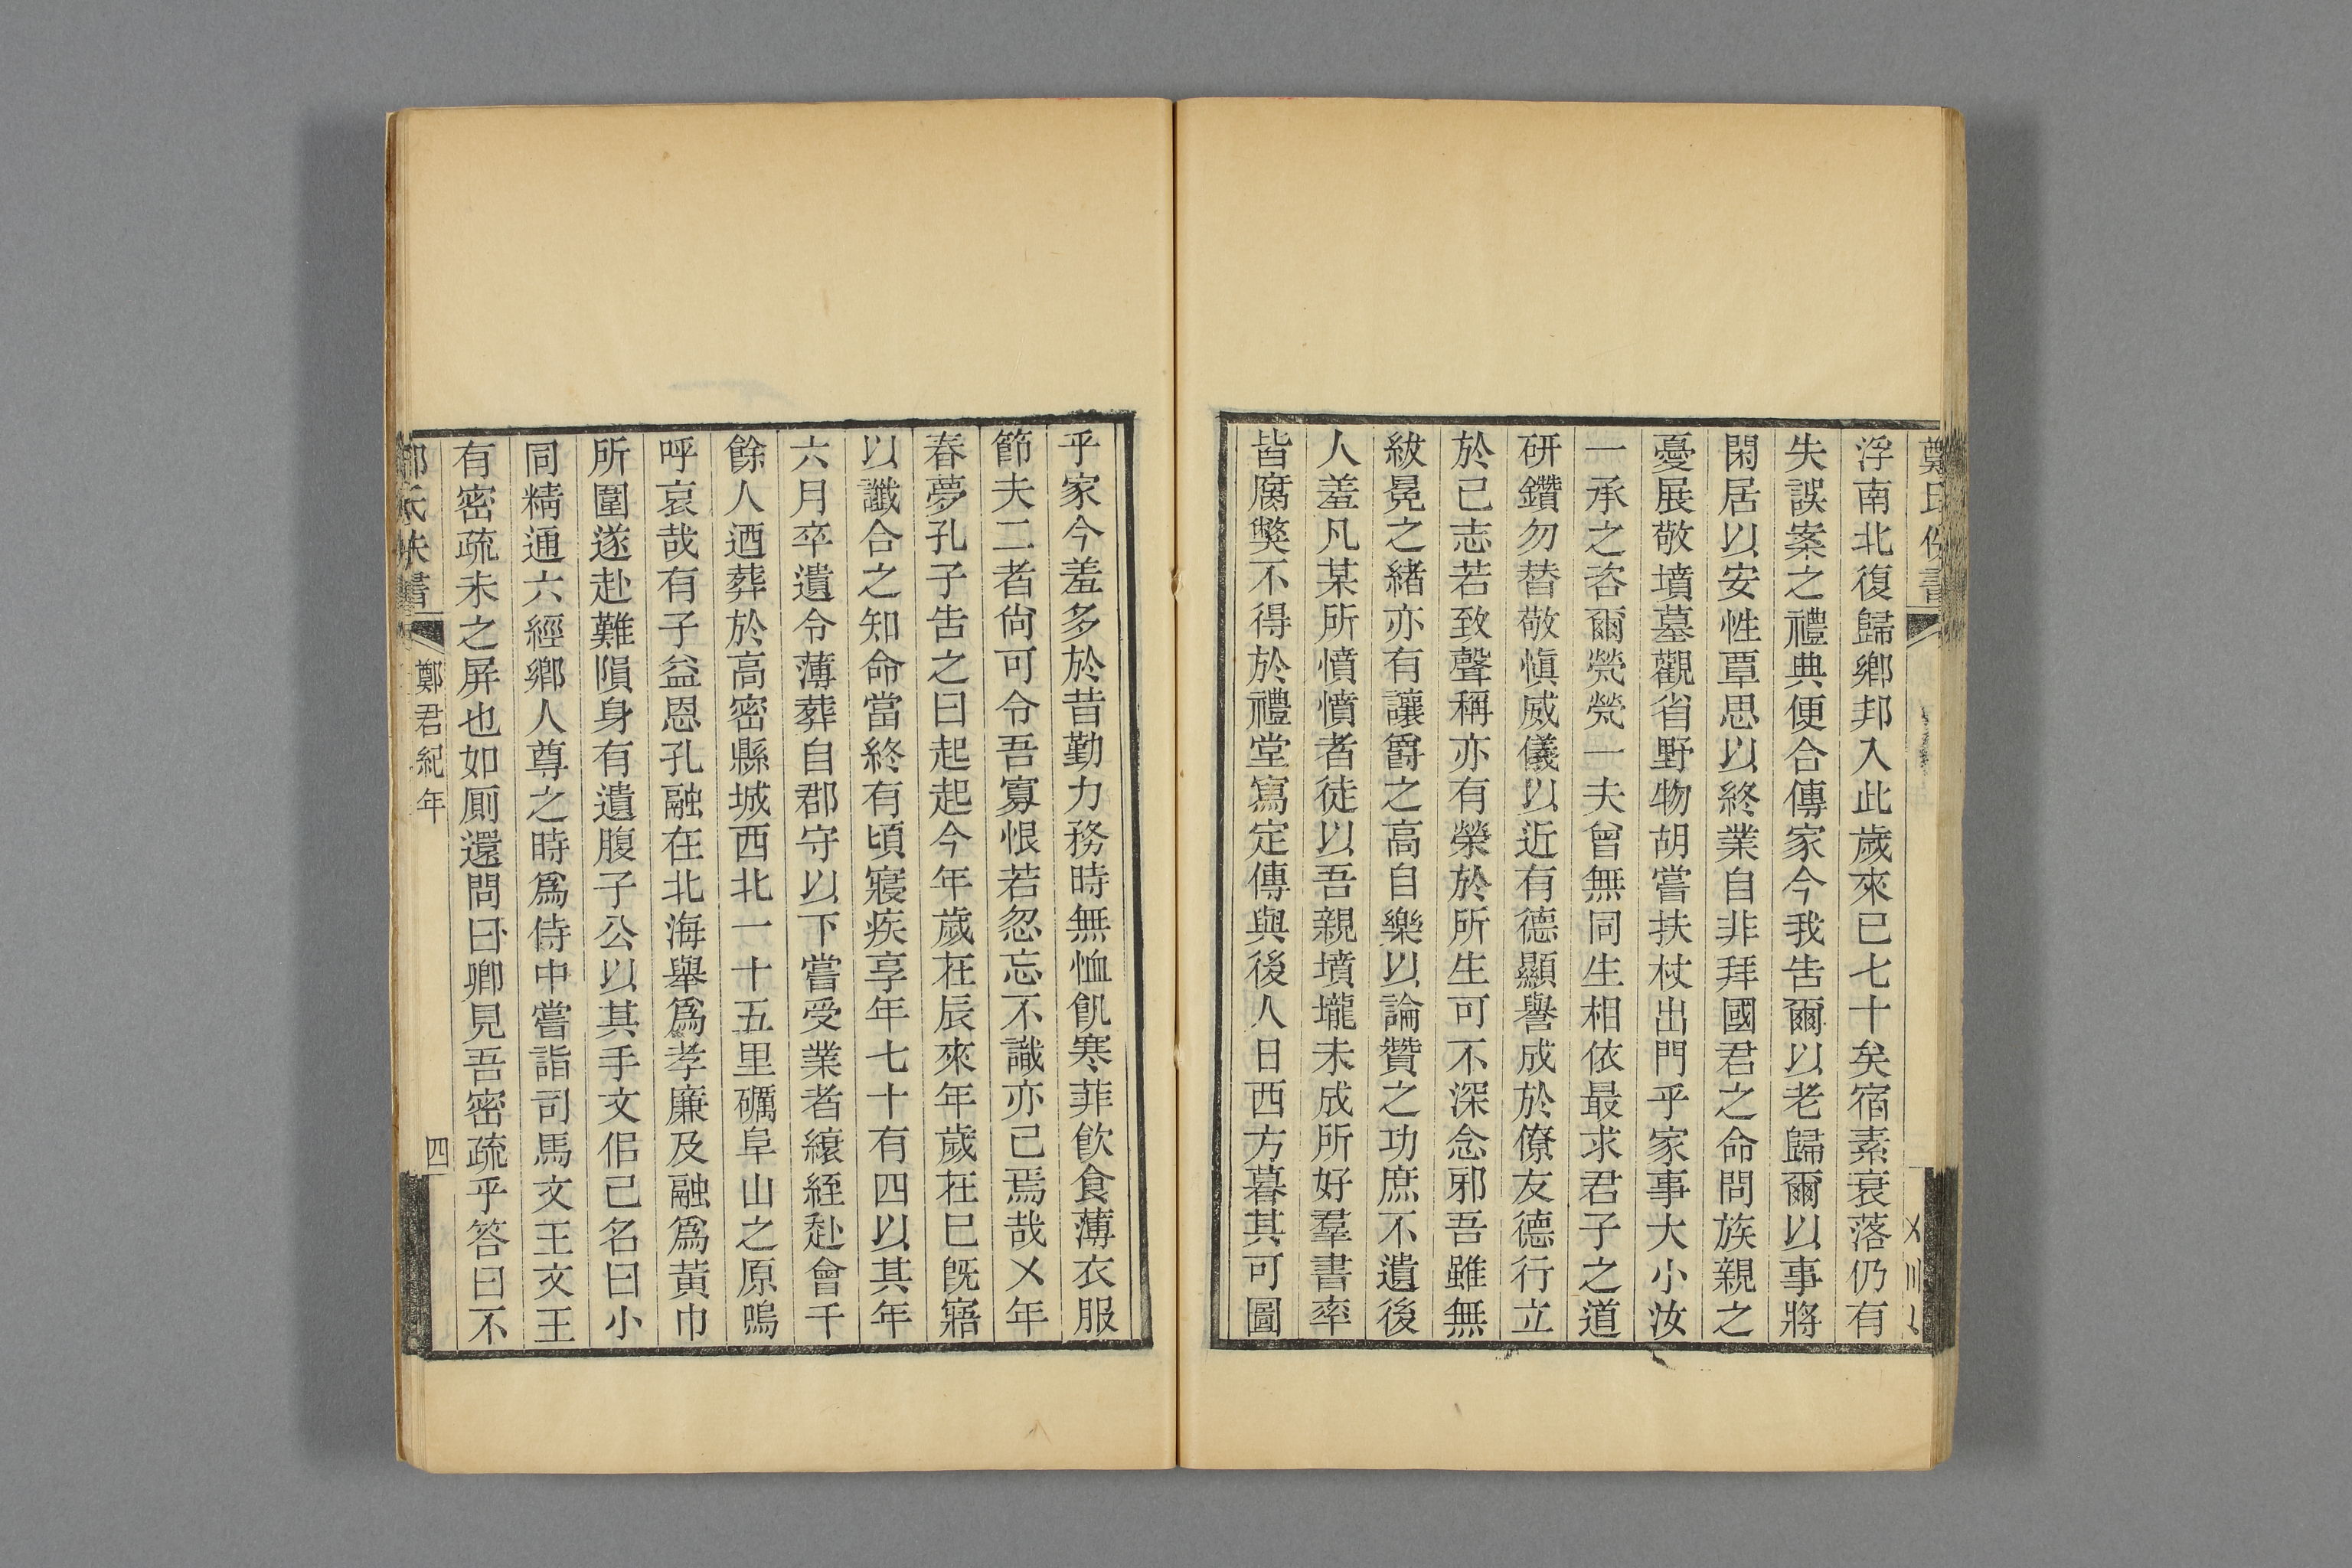 浮南北復歸鄉邦入此歲來巳七十矣宿素衰落仍有
失誤案之禮典便合傳家今我告爾以老歸爾以事將
閑居以安性覃思以終業自非拜國君之命問族親之
憂展敬墳墓觀省野物胡嘗扶杖出門乎家事大小汝
一承之咨爾煢煢一夫曾無同生相依最求君子之道
研鑽勿替敬愼威儀以近有德顯譽成於僚友德行立
於己志若致聲稱亦有榮於所生可不深念邪吾雖無
紱冕之緒亦有讓爵之高自樂以論贊之功庶不遺後
人羞凡某所憤憤者徒以吾親墳壠未成所好羣書率
皆腐獘不得於禮堂寫定傳與後人日西方暮其可圖
乎家今羞多於昔勤力務時無恤飢寒菲飮食薄衣服
節夫二者尙可令吾寡恨若忽忘不識亦已焉哉乂年
春夢孔子告之曰起起今年歲在辰來年歲在巳旣寤
以讖合之知命當終有頃寢疾享年七十有四以其年
六月卒遺令薄葬自郡守以下嘗受業者縗絰赴會千
餘人迺葬於高密縣城西北一十五里礪阜山之原嗚
呼哀哉有子益恩孔融在北海舉爲孝廉及融爲黃巾
所圍遂赴難隕身有遺腹子公以其手文佀己名曰小
同精通六經鄉人尊之時爲侍中嘗詣司馬文王文王
有密疏未之屏也如厠還問曰卿見吾密疏乎答曰不
鄭氏佚書
鄭君紀年
四